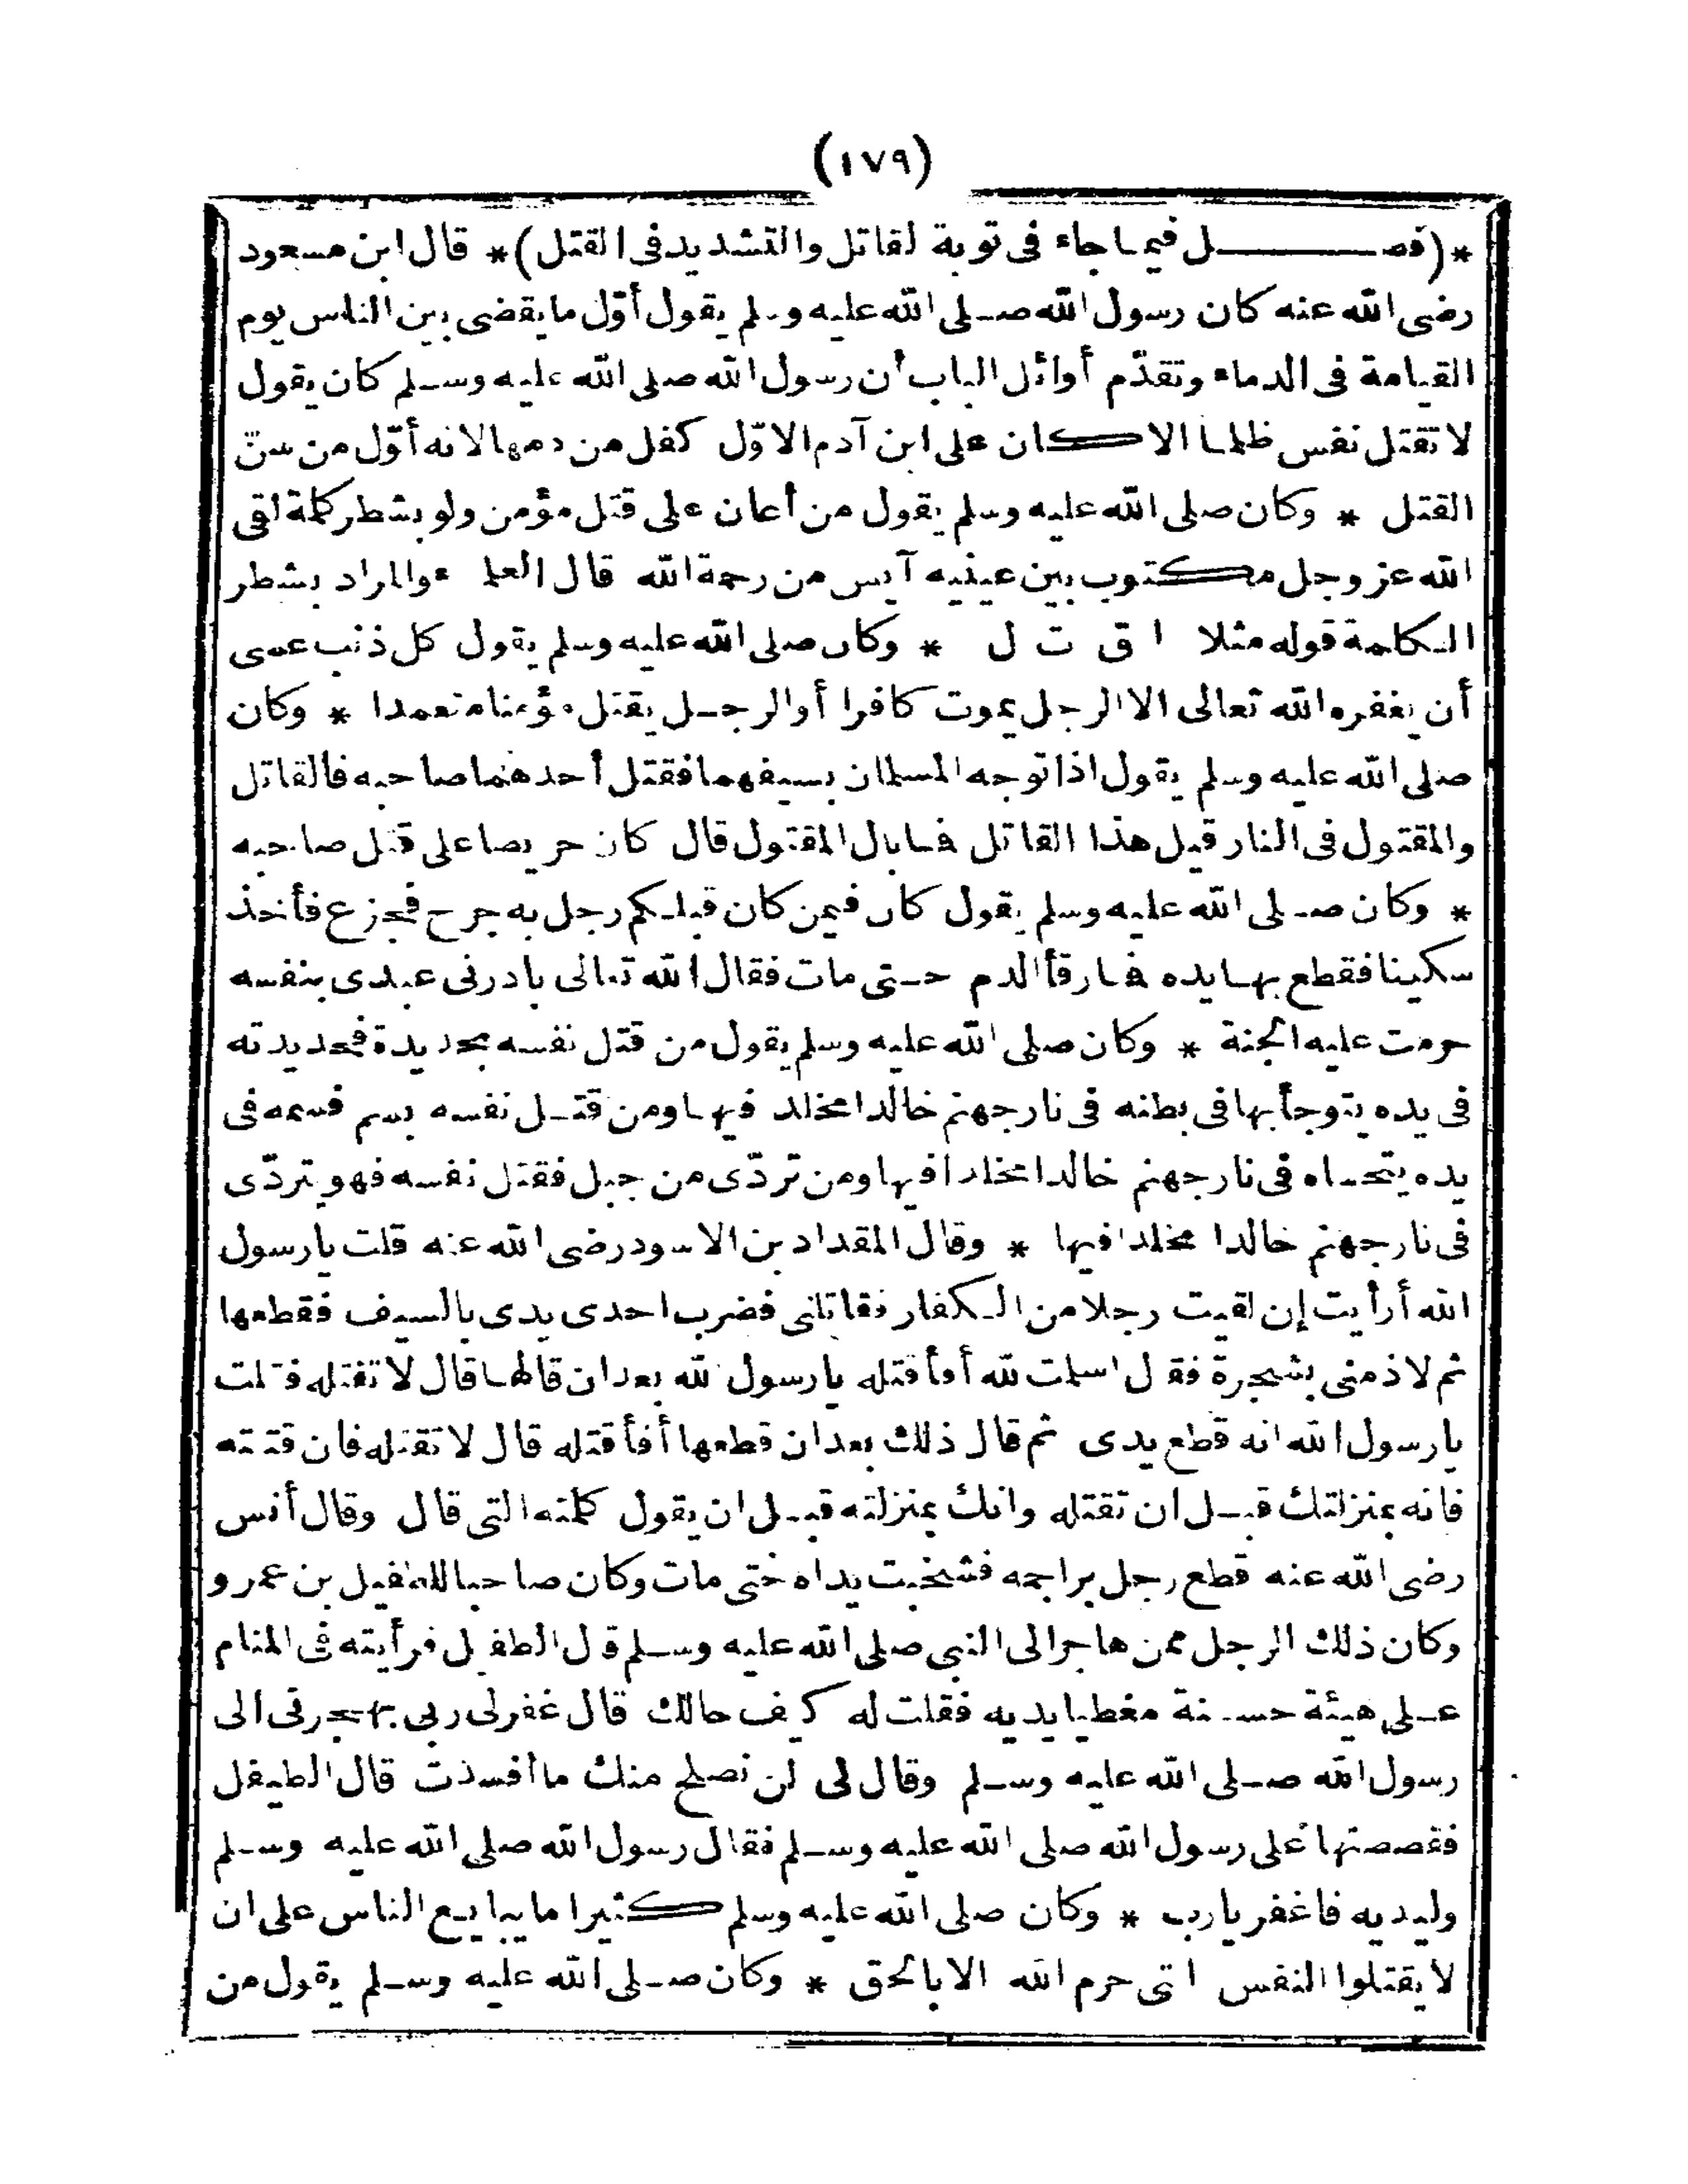 (١٧٩)
*(فصل فيما جاء فى توبة لقاتل والتشديد فى القتل)* قال ابن مسعود
رضى الله عنه كان رسول الله صلى الله عليه وسلم يقول أوّل ما يقضى بين الناس يوم
القيامة فى الدماء وتقدّم أوائل الباب أن رسول الله صلى الله عليه وسلم كان يقول
لا تقتل نفس ظلما الا كان على ابن آدم الاوّل كفل من دمها لانه أوّل من سنّ
القتل * وكان صلى الله عليه وسلم يقول من أعان على قتل مؤمن ولو بشطر كلمة لقى
الله عز وجل مكتوب بين عينيه آيس من رحمة الله قال العلماء والمراد بشطر
الكلمة قوله مثلا ا ق ت ل * وكان صلى الله عليه وسلم يقول كل ذنب عسى
أن يغفره الله تعالى الا الرجل يموت كافرا أو الرجل يقتل مؤمنا متعمدا * وكان
صلى الله عليه وسلم يقول اذا توجه المسلمان بسيفهما فقتل أحدهما صاحبه فالقاتل
والمقتول فى النار قيل هذا القاتل فما بال المقتول قال كان حريصا على قتل صاحبه
* وكان صلى الله عليه وسلم يقول كان فيمن كان قبلكم رجل به جرح فجزع فأخذ
سكينا فقطع بها يده فما رقأ الدم حتى مات فقال الله تعالى بادرنى عبدى بنفسه
حرمت عليه الجنة * وكان صلى الله عليه وسلم يقول من قتل نفسه بحديدة فحديدته
فى يده يتوجأ بها فى بطنه فى نار جهنم خالدا مخلدا فيها ومن قتل نفسه بسم فسمه فى
يده يتحساه فى نار جهنم خالدا مخلدا فيها ومن تردّى من جبل فقتل نفسه فهو يتردّى
فى نار جهنم خالدا مخلدا فيها * وقال المقداد بن الاسود رضى الله عنه قلت يا رسول
الله أرأيت إن لقيت رجلا من الكفار فقاتلنى فضرب احدى يدى بالسيف فقطعها
ثم لاذ منى بشجرة فقال اسلمت لله أفأقتله يا رسول الله بعد ان قالها قال لا تقتله فقلت
يا رسول الله انه قطع يدى ثم قال ذلك بعد ان قطعها أفأقتله قال لا تقتله فان قتلته
فانه بمنزلتك قبل ان تقتله وانك بمنزلته قبل ان يقول كلمته التى قال وقال أنس
رضى الله عنه قطع رجل براجمه فشخبت يداه حتى مات وكان صاحبا للطفيل بن عمرو
وكان ذلك الرجل ممن هاجر الى النبى صلى الله عليه وسلم قال الطفيل فرأيته فى المنام
على هيئة حسنة مغطيا يديه فقلت له كيف حالك قال غفر لى ربى بهجرتى الى
رسول الله صلى الله عليه وسلم وقال لى لن نصلح منك ما أفسدت قال الطيفل
فقصصتها على رسول الله صلى الله عليه وسلم فقال رسول الله صلى الله عليه وسلم
وليديه فاغفر يا رب * وكان صلى الله عليه وسلم كثيرا ما يبايع الناس على ان
لا يقتلوا النفس التى حرم الله الا بالحق * وكان صلى الله عليه وسلم يقول من